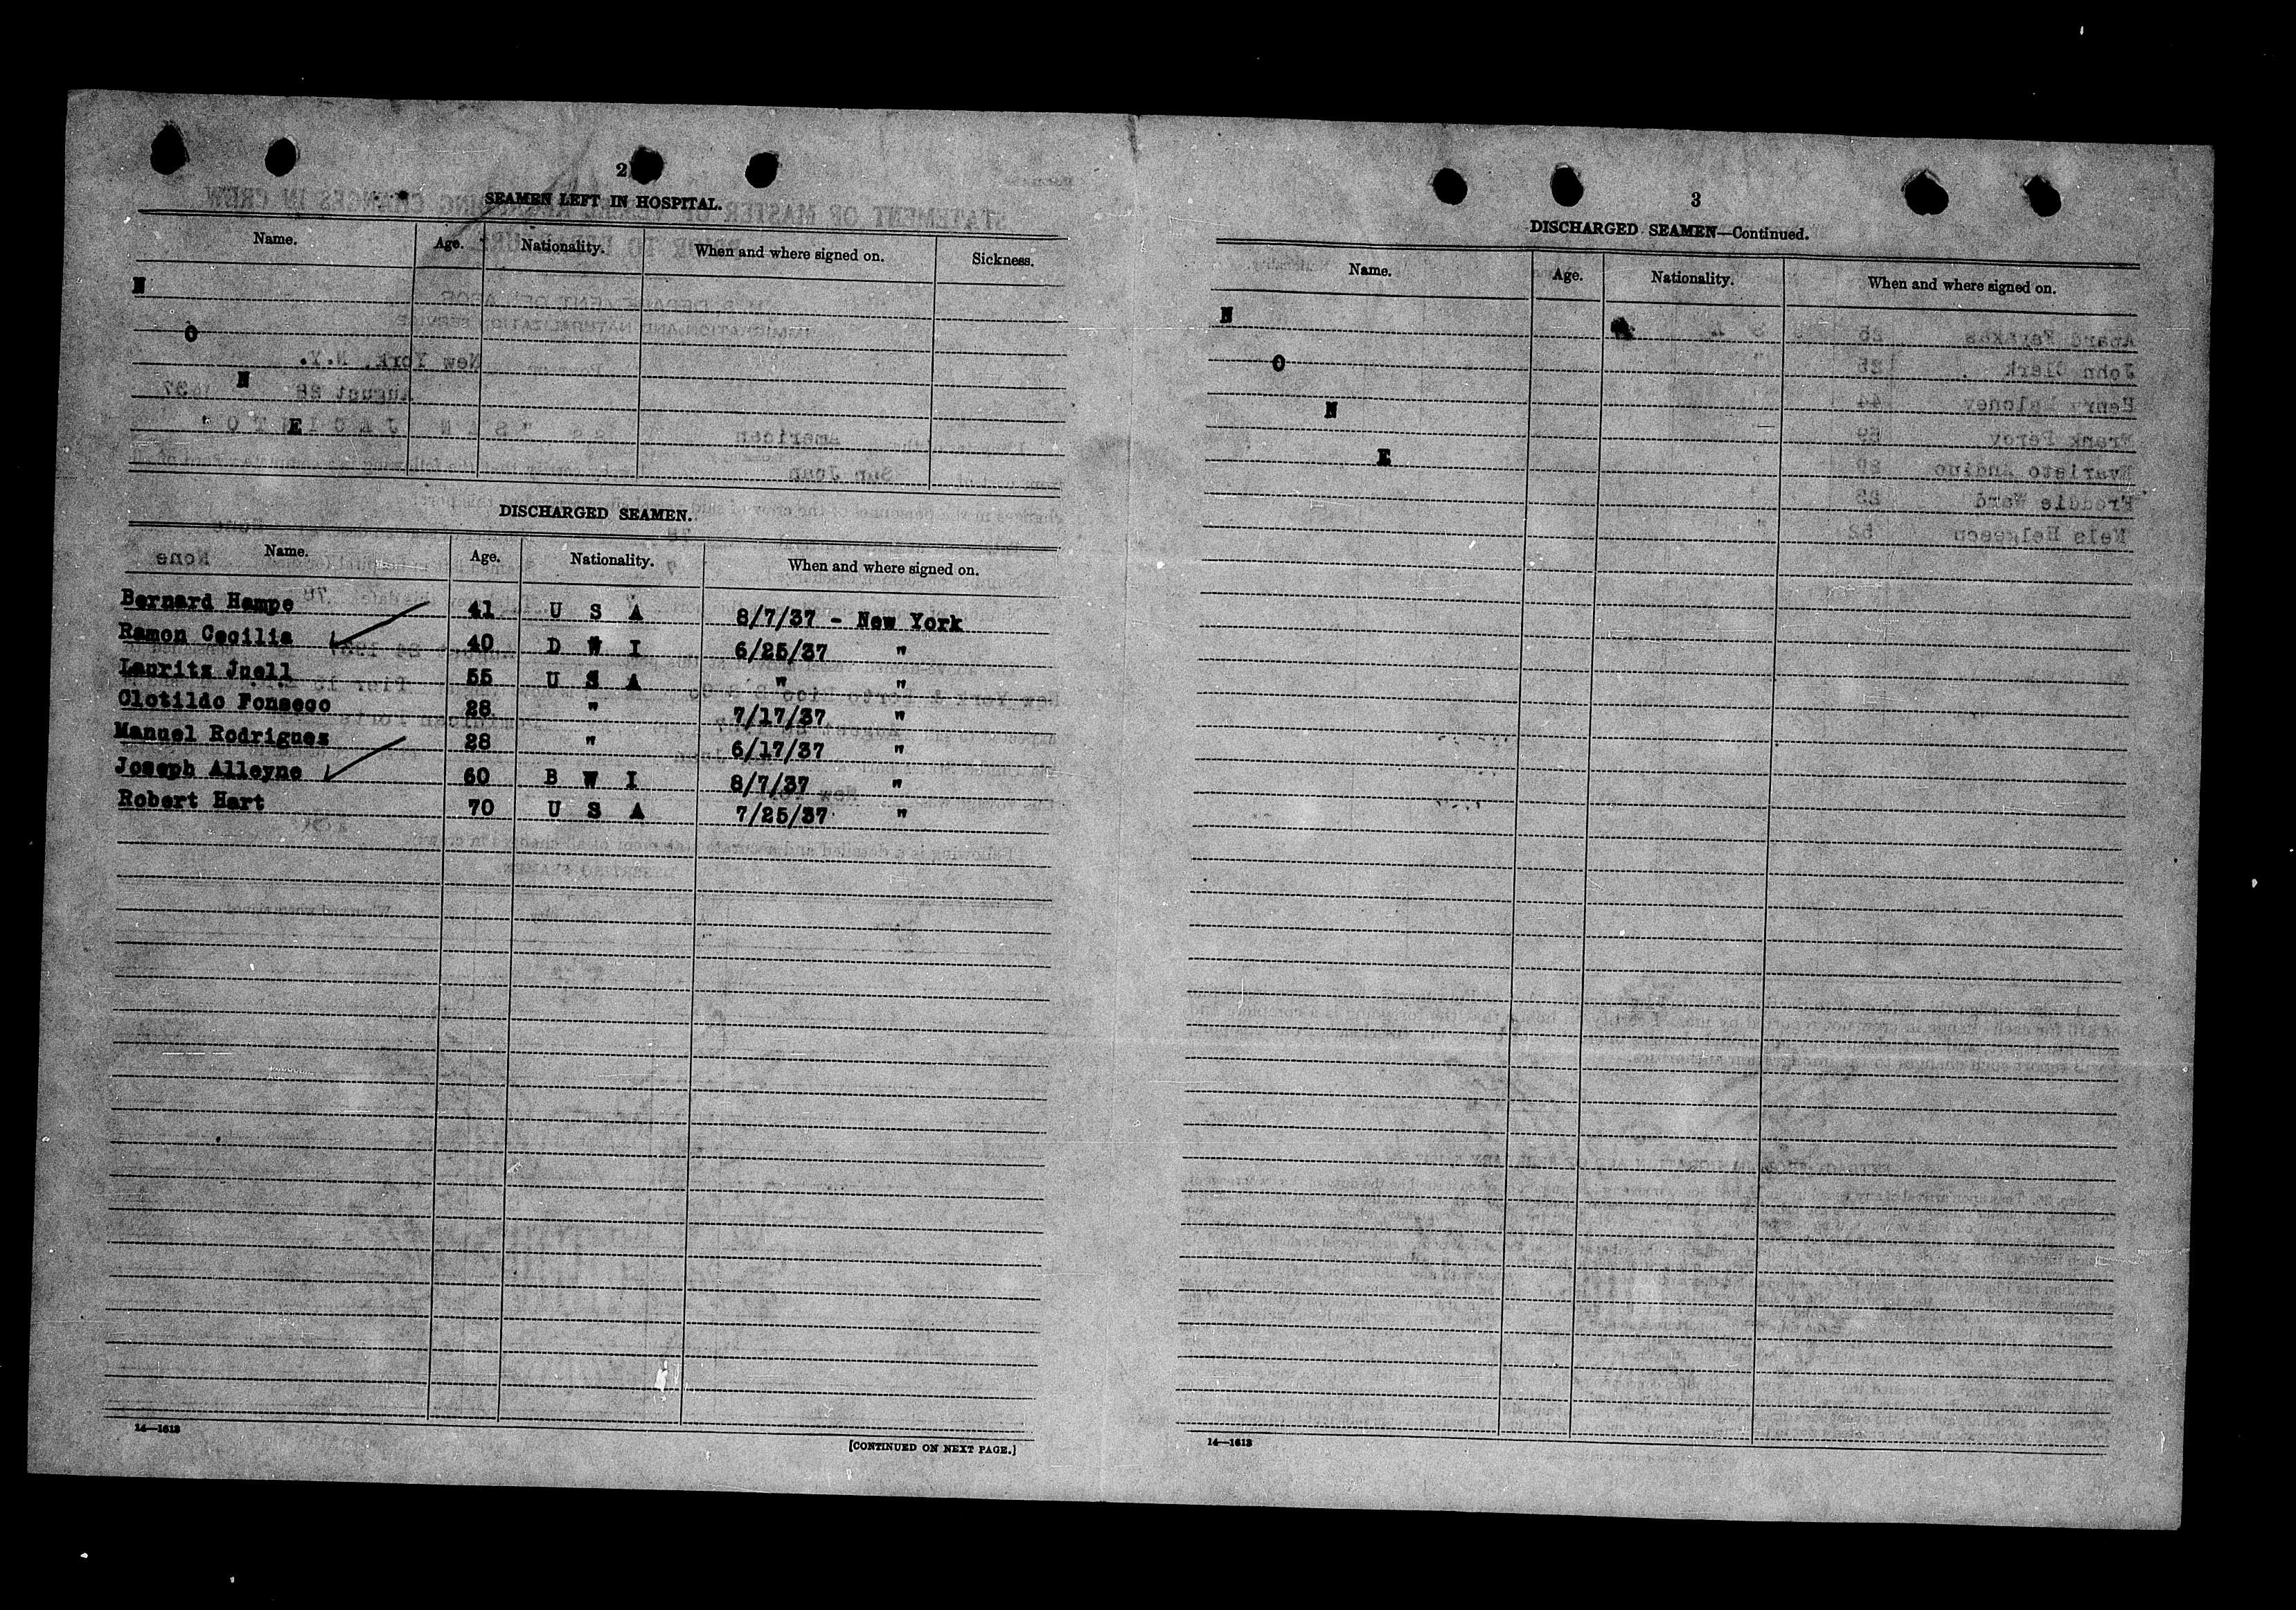 2
SEAMEN LEFT IN HOSPITAL.
Name. Age. Nationality. When and where signed on. Sickness.
N
O
N
E
DISCHARGED SEAMEN.
Name. Age. Nationality. When and where signed on.
Bernard Hampe 41 U S A 8/7/37 - New York
Ramon Cecilia 40 D W I 6/25/37 "
Lauritz Juell 55 U S A " "
Clotildo Fonseco 28 " 7/17/37 "
Manuel Rodriguez 28 " 6/17/37 "
Joseph Alleyne 60 B W I 8/7/37 "
Robert Hart 70 U S A 7/25/37 "
14—1613
[CONTINUED ON NEXT PAGE.]
3
DISCHARGED SEAMEN—Continued.
Name. Age. Nationality. When and where signed on.
N
O
N
E
14—1613